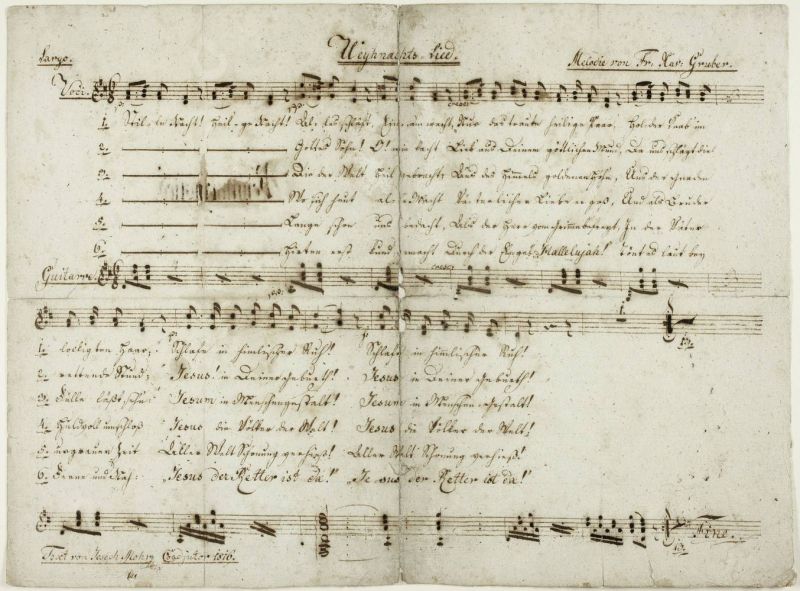 Largo. Weyhnachts-Lied. Melodie von Fr. Xav. Gruber.
Voci.
1. Stille Nacht! Heilige Nacht! Alles schläft, Einsam wacht, Nur das traute heilige Paar. Holder Knab im
2. Gottes Sohn! O! wie lacht Lieb aus Deinem göttlichen Mund, Da uns schlägt die
3. Die der Welt Heil gebracht, Aus des Himmels goldenen Höhn, Uns der Gnaden
4. Wo sich heut alle Macht Väterlicher Liebe ergoß, Und als Bruder
5. Lange schon uns bedacht, Als der Herr vom Grimme befreyt, In der Väter
6. Hirten erst kund gemacht Durch der Engel Hallelujah! Tönt es laut bey
Guitarre.
1. lockigten Haar; Schlafe in himlischer Ruh! Schlafe in himlischer Ruh!
2. rettende Stund; Jesus! in Deiner Geburth! Jesus in Deiner Geburth!
3. Fülle läßt sehn: Jesum in Menschengestalt! Jesum in Menschengestalt!
4. Huldvoll umschloß Jesus die Völker der Welt! Jesus die Völker der Welt!
5. urgrauer Zeit Aller Welt Schonung verhieß! Aller Welt Schonung verhieß!
6. Ferne und Nah: "Jesus der Retter ist da!" "Jesus der Retter ist da!"
Fine.
Text von Joseph Mohr Coadjutor 1816.